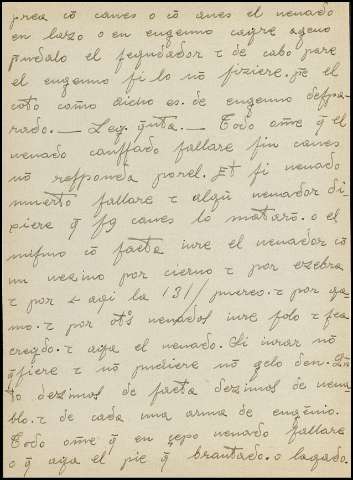 prea cõ canes o cõ aues el uenado
en lazo o en eugenno cayre ageno
pindalo el fegudador τ de cabo pare
el eugenno fi lo nõ fiziere. pe el
coto como dicho es. de eugenno defpa-
rado. — Ley. qnta. — Todo ome q̃ el
uenado canffado fallare fin canes
nõ refponda porel. Et fi uenado
muerto fallare τ algũ uenador di-
xiere q̃ fg canes lo matarõ. o el
mifmo cõ faeta iure el uenador cõ
un uezino por cieruo τ por ezebra
τ por + aqi la 131/ puerco. τ por ga-
mo. τ por otõs uenados iure folo τ fea
creydo. τ aya el uenado. Si iurar nõ
q̃fiere τ nõ pudiere nõ gelo den. Qn-
to dezimos de faeta dezimos de uena-
blo. τ de cada una arma de eugẽnio.
Todo ome q̃ en çepo uenado fallare
o q̃ aya el pie q̃ brantado. o lagado.